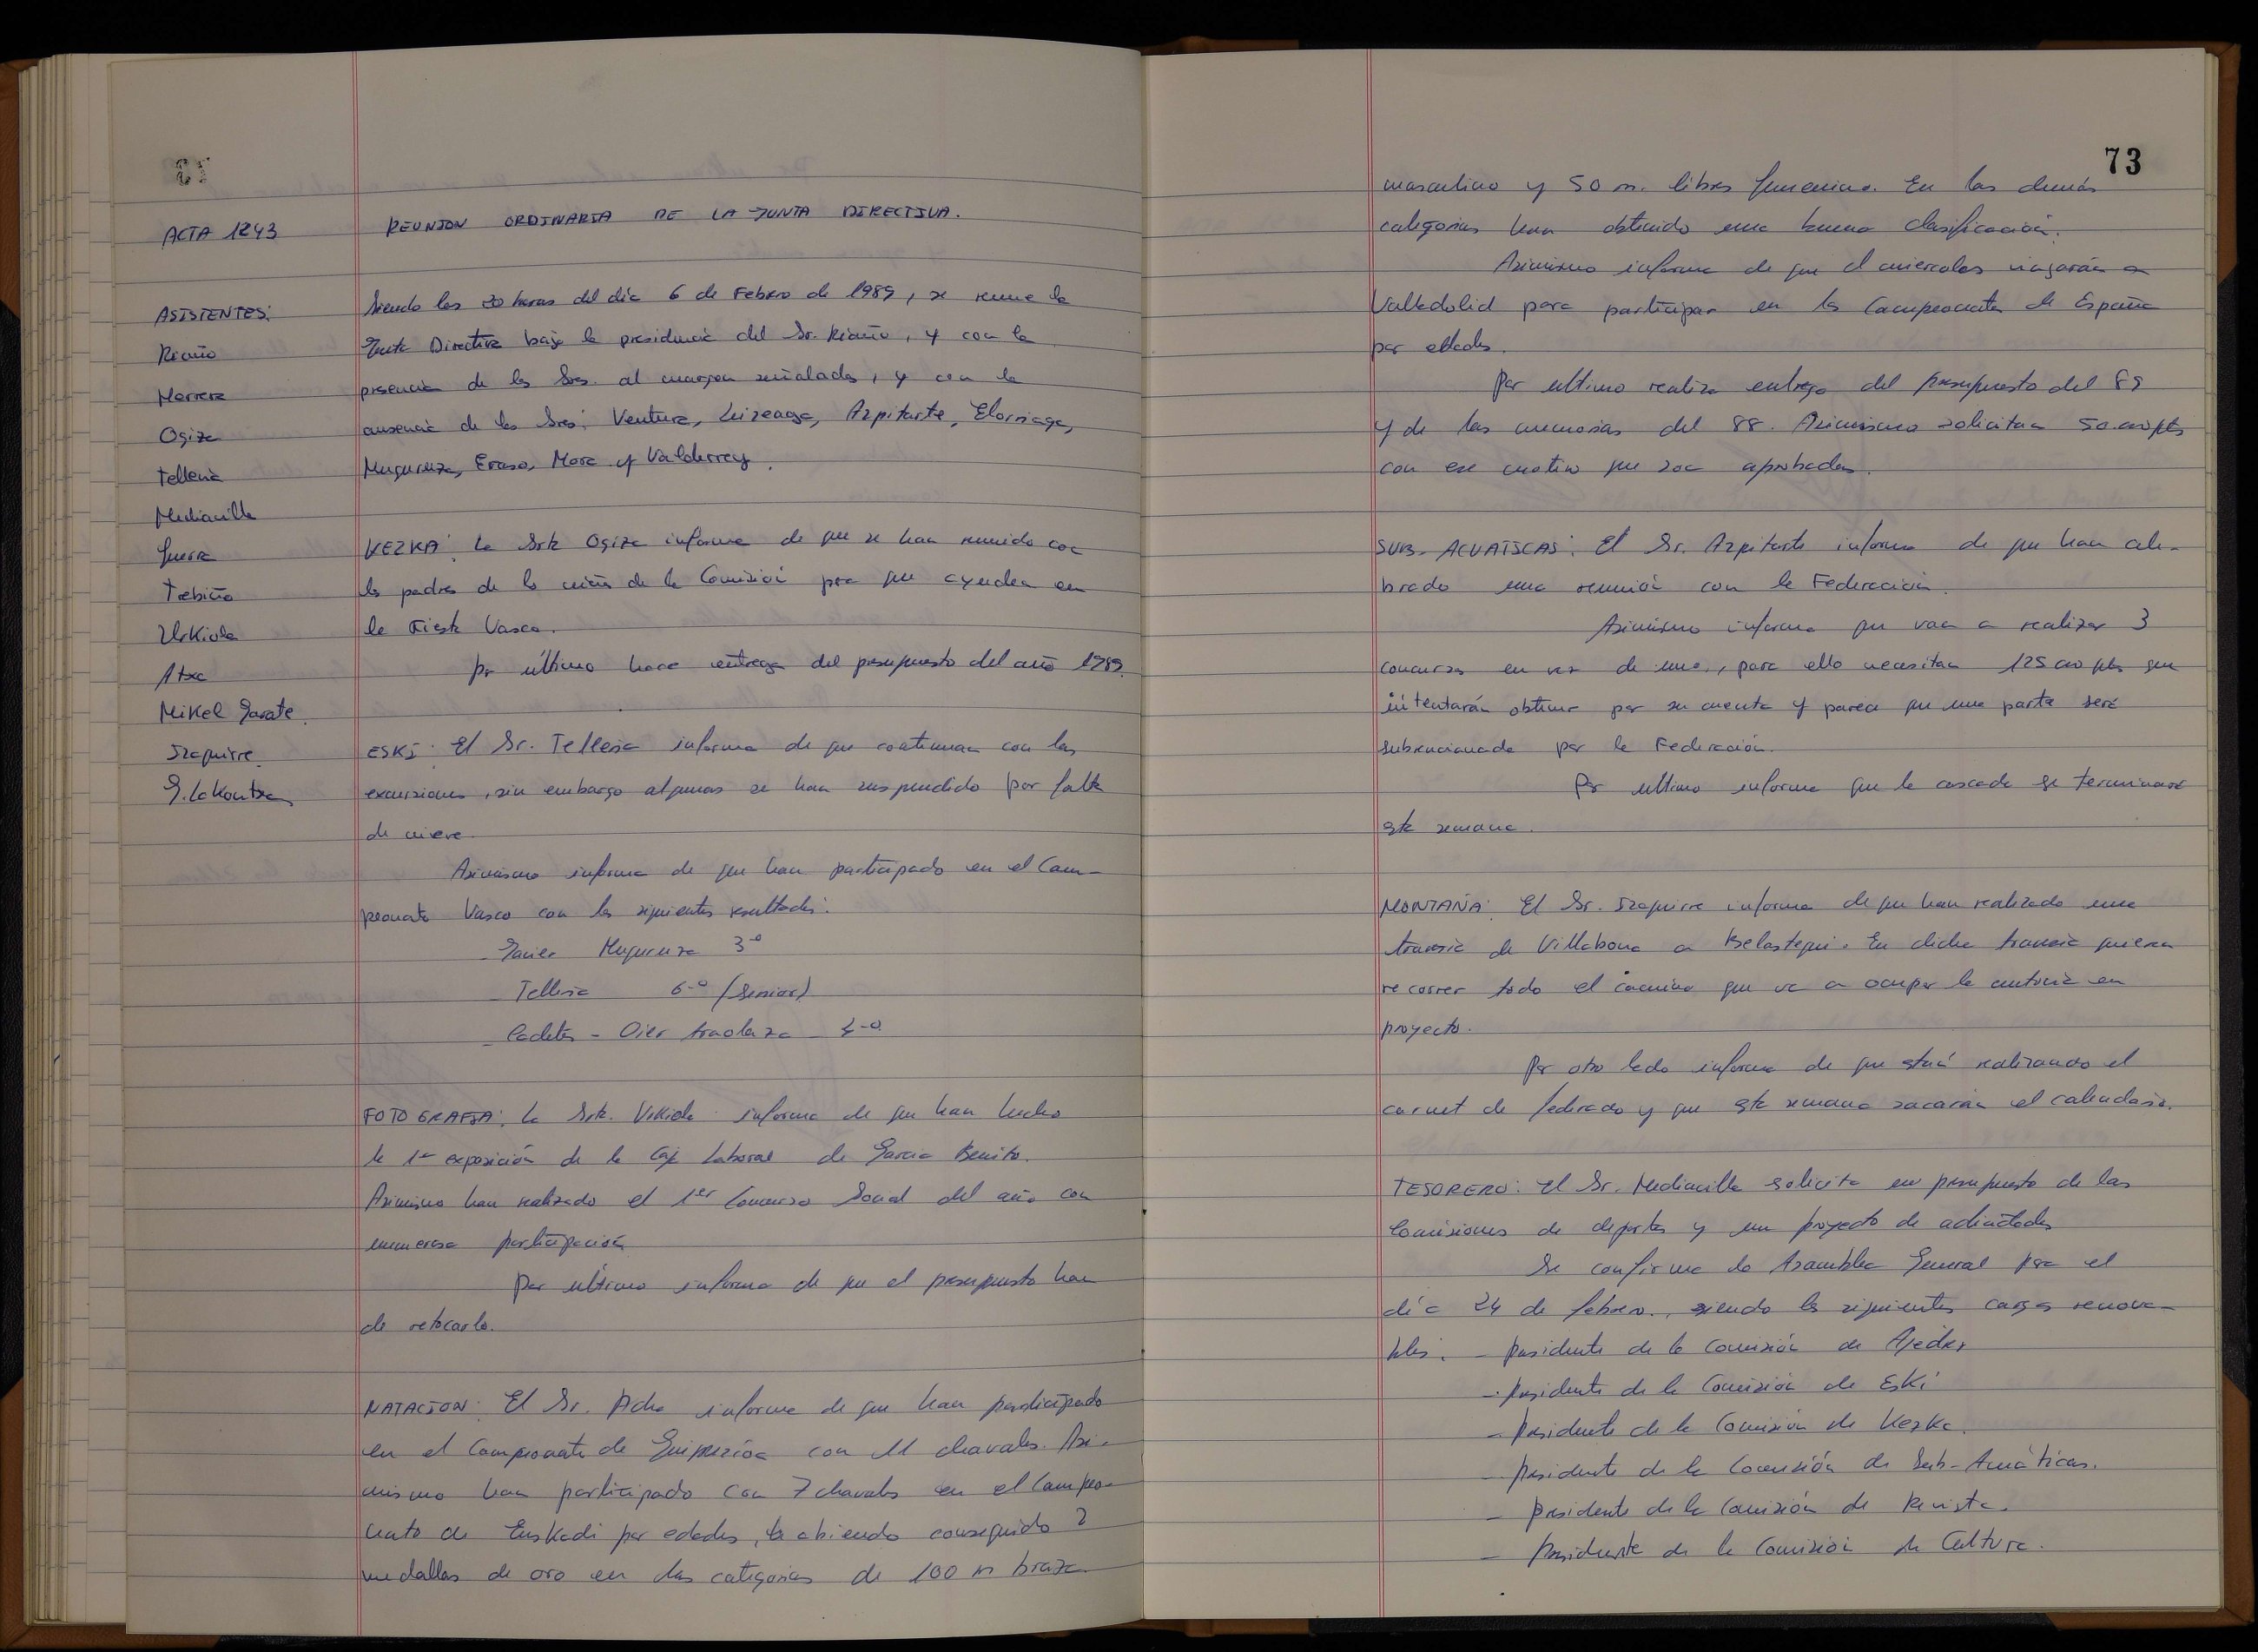 ACTA 1243
REUNION ORDINARIA DE LA JUNTA DIRECTIVA.
ASISTENTES:
Riaño
Herrera
Ogiza
Telleria
Mediavilla
Guerra
Trebiño
Urkiola
Atxa
Mikel Garate.
Izaguirre.
G. Lakontxa
Siendo las 20 horas del día 6 de Febrero de 1989, se reune la
Junta Directiva bajo la presidencia del Sr. Riaño, y con la
presencia de los Sres. al margen señalados, y con la
ausencia de los Sres: Ventura, Leizeaga, Azpitarte, Elorriaga,
Muguruza, Eraso, Mora y Valderrey.
KEZKA: La Srta Ogiza informa de que se han reunido con
los padres de los niños de la Comisión para que ayuden en
la Fiesta Vasca.
Por último hace entrega del presupuesto del año 1989.
ESKI: El Sr. Telleria informa de que continuan con las
excursiones, sin embargo algunas se han suspendido por falta
de nieve.
Asimismo informa de que han participado en el Cam-
peonato Vasco con los siguientes resultados:
- Javier Muguruza 3º
- Telleria 6º (Senior)
- Cadetes - Oier
FOTOGRAFIA: La Srta. Urkiola informa de que han hecho
la 1ª exposición de la Caja Laboral de Garcia Benito.
Asimismo han realizado el 1er Concurso Social del año con
numerosa participación
Por ultimo informa de que el presupuesto han
de retocarlo.
NATACION: El Sr. Acha informa de que han participado
en el Campeonato de Guipuzcoa con 11 chavales. Asi-
mismo han participado con 7 chavales en el Campeo-
nato de Euskadi por edades, habiendo conseguido 2
medallas de oro en las categorias de 100 m braza
73
masculino y 50 m. libres femenino. En las demás
categorias han obtenido una buena clasificación.
Asimismo informa de que el miercoles viajarán a
Valladolid para participar en los Campeonatos de España
por edades.
Por ultimo realiza entrega del presupuesto del 89
y de las memorias del 88. Asimismo solicitan 50.000 pts
con ese motivo que son aprobadas.
SUB-ACUATICAS: El Sr. Azpitarte informa de que han cele-
brado una reunión con la Federación.
Asimismo informa que van a realizar 3
concursos en vez de uno, para ello necesitan 125.000 pts que
intentarán obtener por su cuenta y parece que una parte será
subvencionada por la Federación.
Por ultimo informa que la cascada se terminará
esta semana.
MONTAÑA: El Sr. Izaguirre informa de que han realizado una
travesia de Villabona a Belastegui. En dicha travesia quieren
recorrer todo el camino que va a ocupar la autovia en
proyecto.
Por otro lado informa de que están realizando el
carnet de federado y que esta semana sacarán el calendario.
TESORERO: El Sr. Mediavilla solicita un presupuesto de las
Comisiones de deportes y un proyecto de actividades
Se confirma la Asamblea General para el
día 24 de febrero, siendo los siguientes cargos renova-
bles: - Presidente de la Comisión de Ajedrez
- Presidente de la Comisión de Eski
- Presidente de la Comisión de Kezka.
- Presidente de la Comisión de Sub-Acuáticas.
- Presidente de la Comisión de Revista.
- Presidente de la Comisión de Cultura.